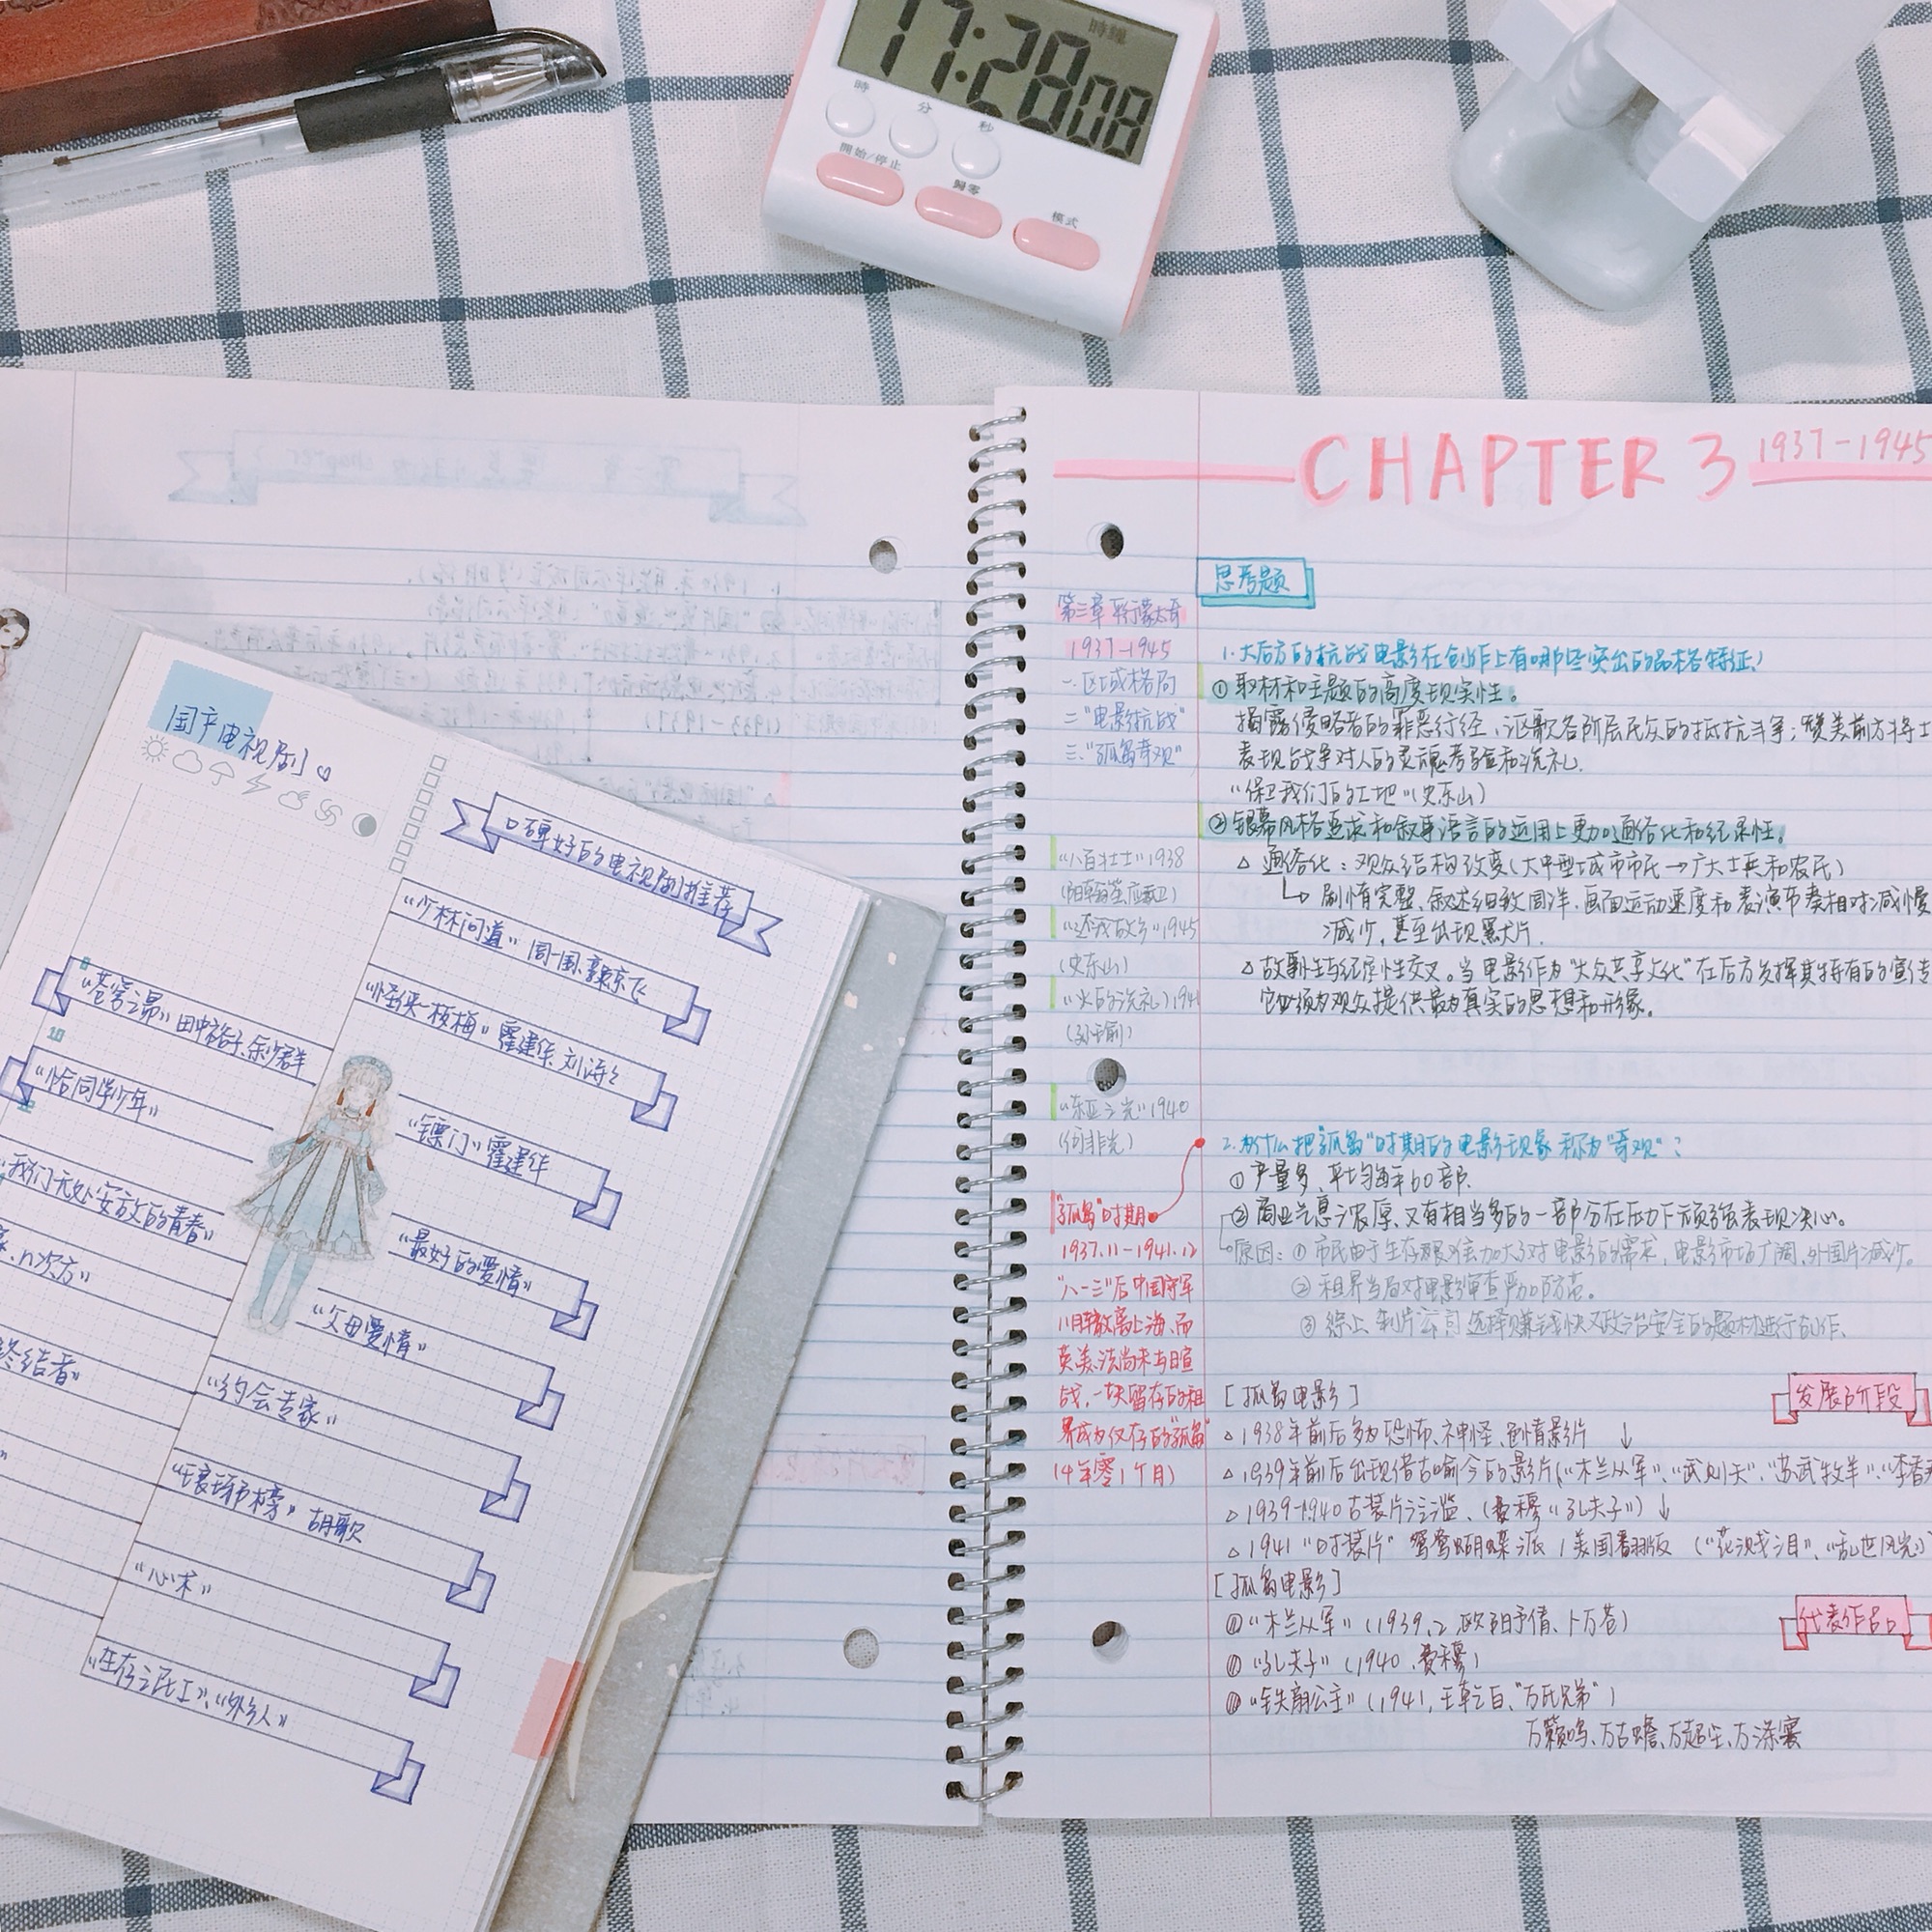 時鐘
17:28 08
時
分
秒
開始/停止
歸零
模式
国产电视剧
口碑好的电视剧推荐
"少林问道" 周一围、郭京飞
"怪侠一枝梅" 霍建华、刘诗诗
"镖门" 霍建华
"最好的爱情"
"父母爱情"
"约会专家"
"琅琊榜" 胡歌
"心术"
"生存之民工"、"外乡人"
"苍穹之昴" 田中裕子、余少群
10
"恰同学少年"
"我们无处安放的青春"
n次方"
终结者"
CHAPTER 3 1937-1945
第三章 平行蒙太奇
1937-1945
一.区域格局
二."电影抗战"
三."孤岛奇观"
"八百壮士" 1938
(阳翰笙、应云卫)
"还我故乡" 1945
(史东山)
"火的洗礼" 1941
(孙瑜)
"东亚之光" 1940
(何非光)
"孤岛"时期
1937.11-1941.12
"八一三"后中国守军
撤离上海,而
英美、法尚未与日宣
战,一块留存的租
界成为仅存的"孤岛"
(4年零1个月)
思考题
1.大后方的抗战电影在创作上有哪些突出的品格特征?
① 取材和主题的高度现实性。
揭露侵略者的罪恶行径,讴歌各阶层民众的抵抗斗争;赞美前方将士
表现战争对人的灵魂考验和洗礼.
"保卫我们的土地"(史东山)
② 银幕风格追求和叙事语言的运用上更加通俗化和纪录性。
△ 通俗化:观众结构改变(大中型城市市民→广大士兵和农民)
↳ 剧情完整、叙述细致周详、画面运动速度和表演节奏相对减慢
减少,甚至出现黑大片.
△ 故事性与纪录性交叉。当电影作为"大众共享文化"在后方发挥其特有的宣传
它必须为观众提供最为真实的思想和形象。
2.为什么把"孤岛"时期的电影现象称为"奇观"?
① 产量多,平均每年60部.
② 商业气息浓厚、又有相当多的一部分在压力下顽强表现决心。
原因:① 市民由于生存艰难加大了对电影的需求,电影市场广阔、外国片减少。
② 租界当局对电影审查严加防范。
③ 综上,制片公司选择赚钱快又政治安全的题材进行创作.
[孤岛电影]
发展阶段
△ 1938年前后多为恐怖、神怪、色情影片 ↓
△ 1939年前后出现借古喻今的影片("木兰从军"、"武则天"、"苏武牧羊"、"李香
△ 1939-1940古装片泛滥、(费穆"孔夫子")↓
△ 1941 "时装片" 鸳鸯蝴蝶派 / 美国翻版 ("花溅泪"、"乱世风光")
[孤岛电影]
代表作品
"木兰从军" (1939.2 欧阳予倩、卜万苍)
"孔夫子" (1940 费穆)
"铁扇公主" (1941,王乾白、"万氏兄弟")
万籁鸣、万古蟾、万超尘、万涤寰